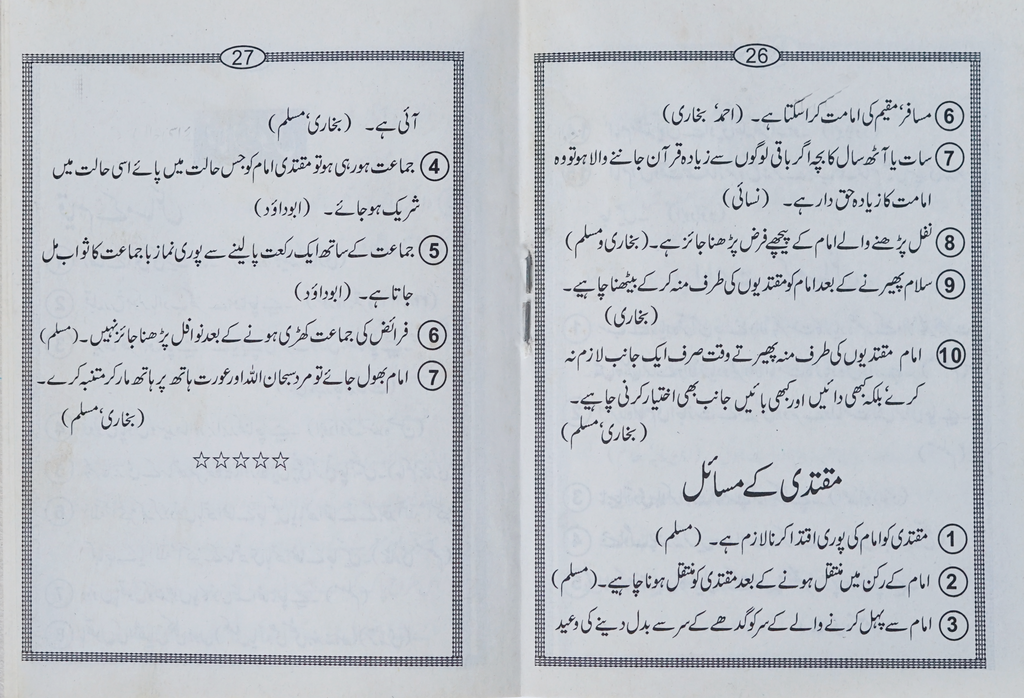 26
⑥ مسافر، مقیم کی امامت کرا سکتا ہے۔ (احمد، بخاری)
⑦ سات یا آٹھ سال کا بچہ اگر باقی لوگوں سے زیادہ قرآن جاننے والا ہو تو وہ
امامت کا زیادہ حق دار ہے۔ (نسائی)
⑧ نفل پڑھنے والے امام کے پیچھے فرض پڑھنا جائز ہے۔ (بخاری و مسلم)
⑨ سلام پھیرنے کے بعد امام کو مقتدیوں کی طرف منہ کر کے بیٹھنا چاہیے۔
(بخاری)
⑩ امام مقتدیوں کی طرف منہ پھیرتے وقت صرف ایک جانب لازم نہ
کرے، بلکہ کبھی دائیں اور کبھی بائیں جانب بھی اختیار کرنی چاہیے۔
(بخاری، مسلم)
مقتدی کے مسائل
① مقتدی کو امام کی پوری اقتدا کرنا لازم ہے۔ (مسلم)
② امام کے رکن میں منتقل ہونے کے بعد مقتدی کو منتقل ہونا چاہیے۔ (مسلم)
③ امام سے پہل کرنے والے کے سر کو گدھے کے سر سے بدل دینے کی وعید
27
آئی ہے۔ (بخاری، مسلم)
④ جماعت ہو رہی ہو تو مقتدی امام کو جس حالت میں پائے اسی حالت میں
شریک ہو جائے۔ (ابوداؤد)
⑤ جماعت کے ساتھ ایک رکعت پا لینے سے پوری نماز باجماعت کا ثواب مل
جاتا ہے۔ (ابوداؤد)
⑥ فرائض کی جماعت کھڑی ہونے کے بعد نوافل پڑھنا جائز نہیں۔ (مسلم)
⑦ امام بھول جائے تو مرد سبحان اللہ اور عورت ہاتھ پر ہاتھ مار کر متنبہ کرے۔
(بخاری، مسلم)
☆☆☆☆☆